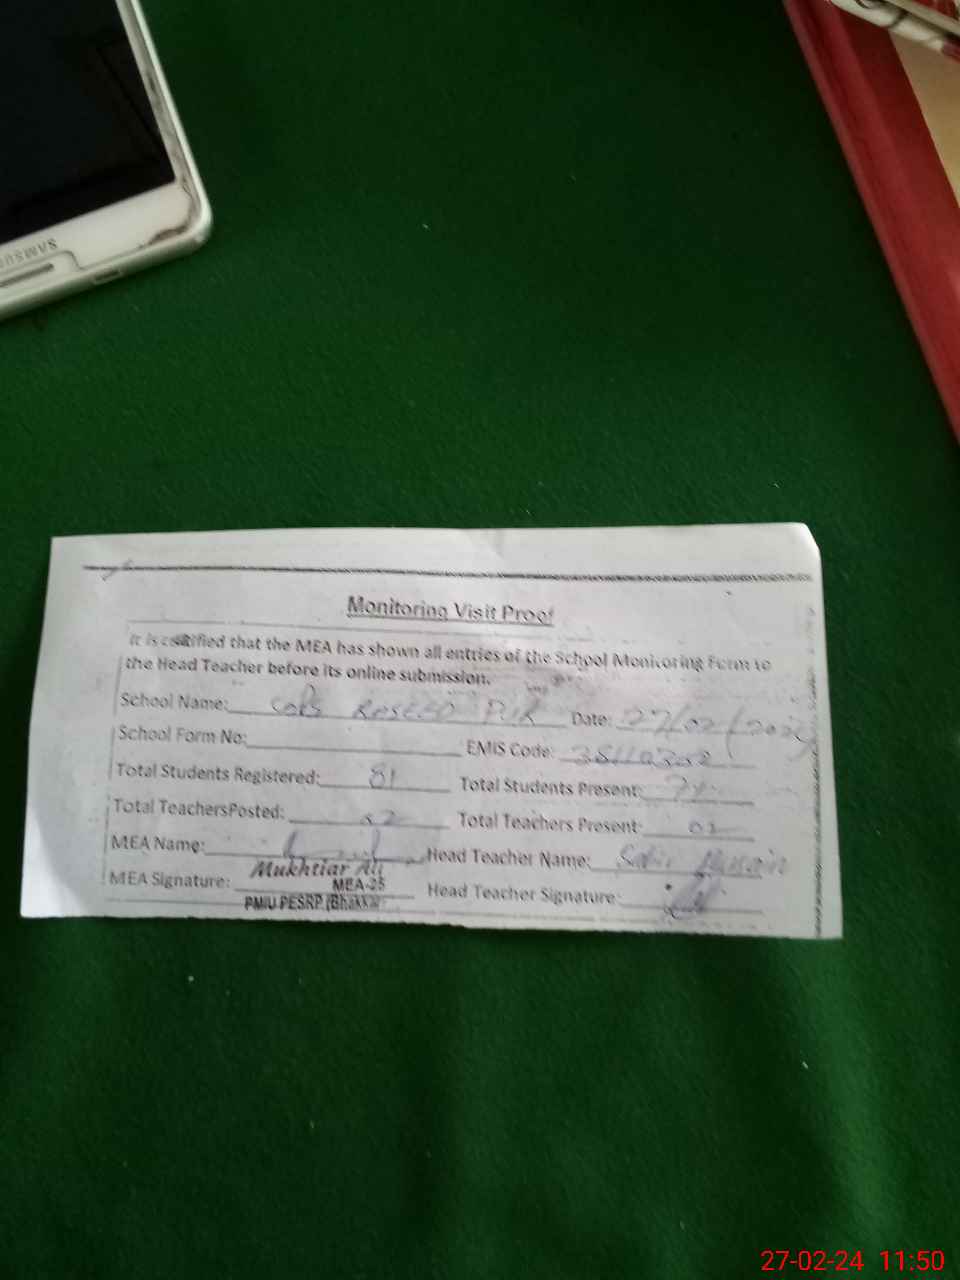 SAMSU
Monitoring Visit Proof
It is certified that the MEA has shown all entries of the School Monitoring Form to
the Head Teacher before its online submission.
School Name: PUR Date: 27/02/2024
School Form No: EMIS Code:
Total Students Registered: 81 Total Students Present:
Total TeachersPosted: 02 Total Teachers Present: 02
MEA Name: Head Teacher Name:
Mukhtiar Ali
MEA Signature: MEA-25 Head Teacher Signature:
PMIU PESRP (Bhakkar
27-02-24 11:50